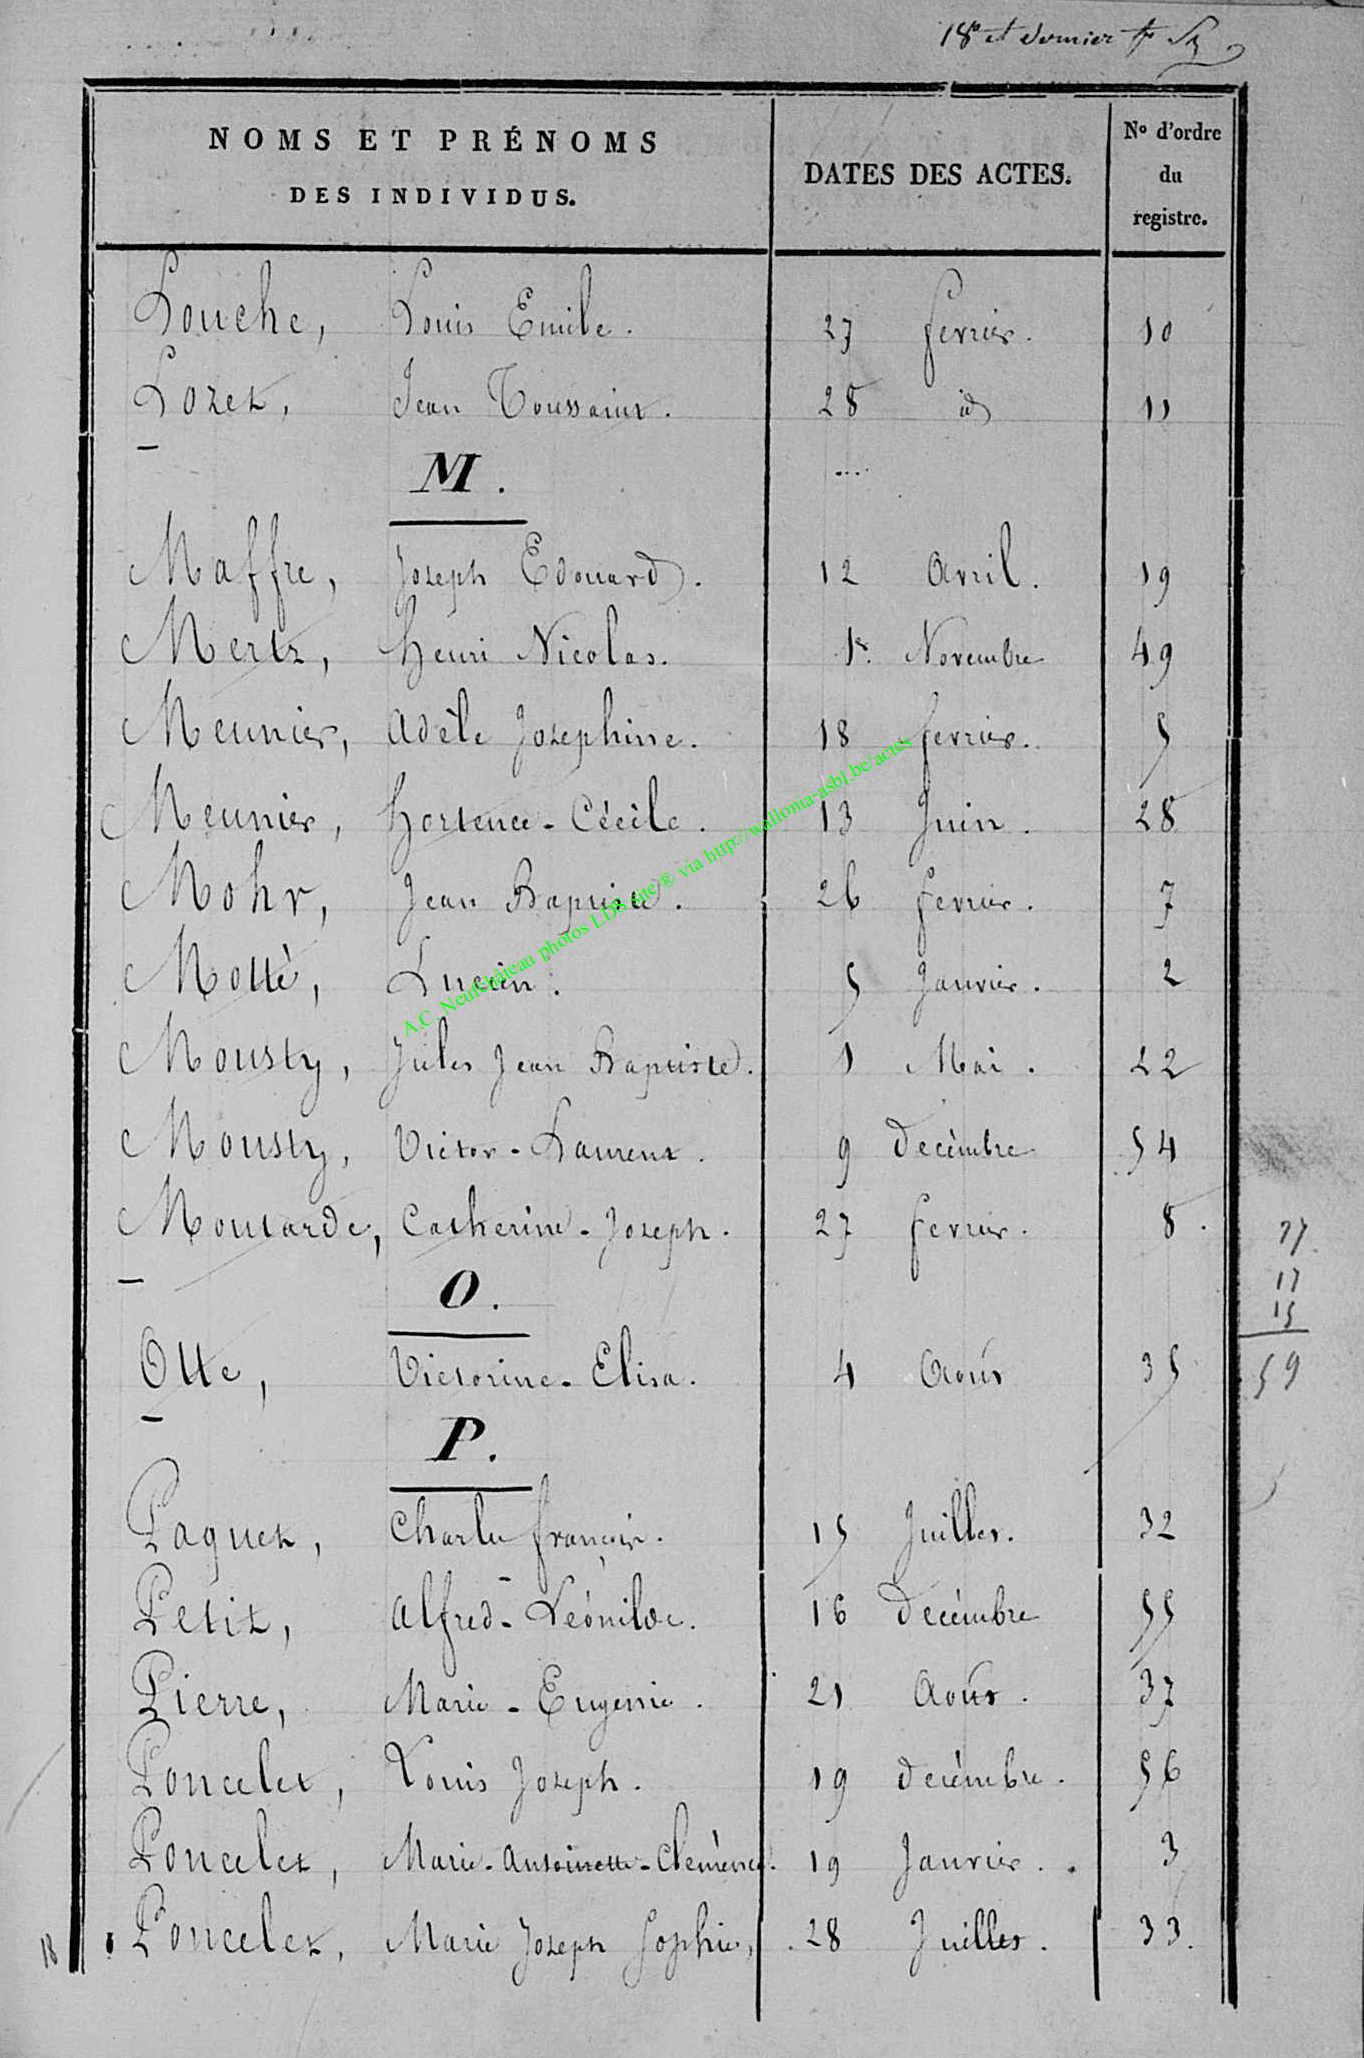 18e et dernier
NOMS ET PRÉNOMS
DES INDIVIDUS.
DATES DES ACTES.
No d'ordre
du
registre.
Louche, Louis Emile. 27 fevrier. 10
Lozet, Jean Toussaint. 28 id 11
M.
Maffre, Joseph Edouard. 12 Avril. 19
Mertz, henri Nicolas. 1r. Novembre 49
Meunier, Adèle Josephine. 18 fevrier. 5
Meunier, hortence - Cécile. 13 Juin. 28
Mohr, Jean Baptiste. 26 fevrier. 7
Motté, Lucien. 5 Janvier. 2
Mousty, Jules Jean Baptiste. 1 Mai. 22
Mousty, Victor - Laurent. 9 decémbre 54
Moutarde, Catherine - Joseph. 27 fevrier. 8.
77
17
15
O.
Otte, Victorine - Elisa. 4 Août 35
59
P.
Paquet, Charles françois. 15 Juillet. 32
Petit, Alfred - Léonilde. 16 decémbre 55
Pierre, Marie - Eugenie. 21 Août. 37
Poncelet, Louis Joseph. 19 decémbre. 56
Poncelet, Marie - Antoinette - Clemènce. 19 Janvier. 3
Poncelet, Marie Joseph Sophie, 28 Juillet. 33.
18
A.C. Neufchâteau photos LDS site ® via http://wallonia-asbl.be/actes